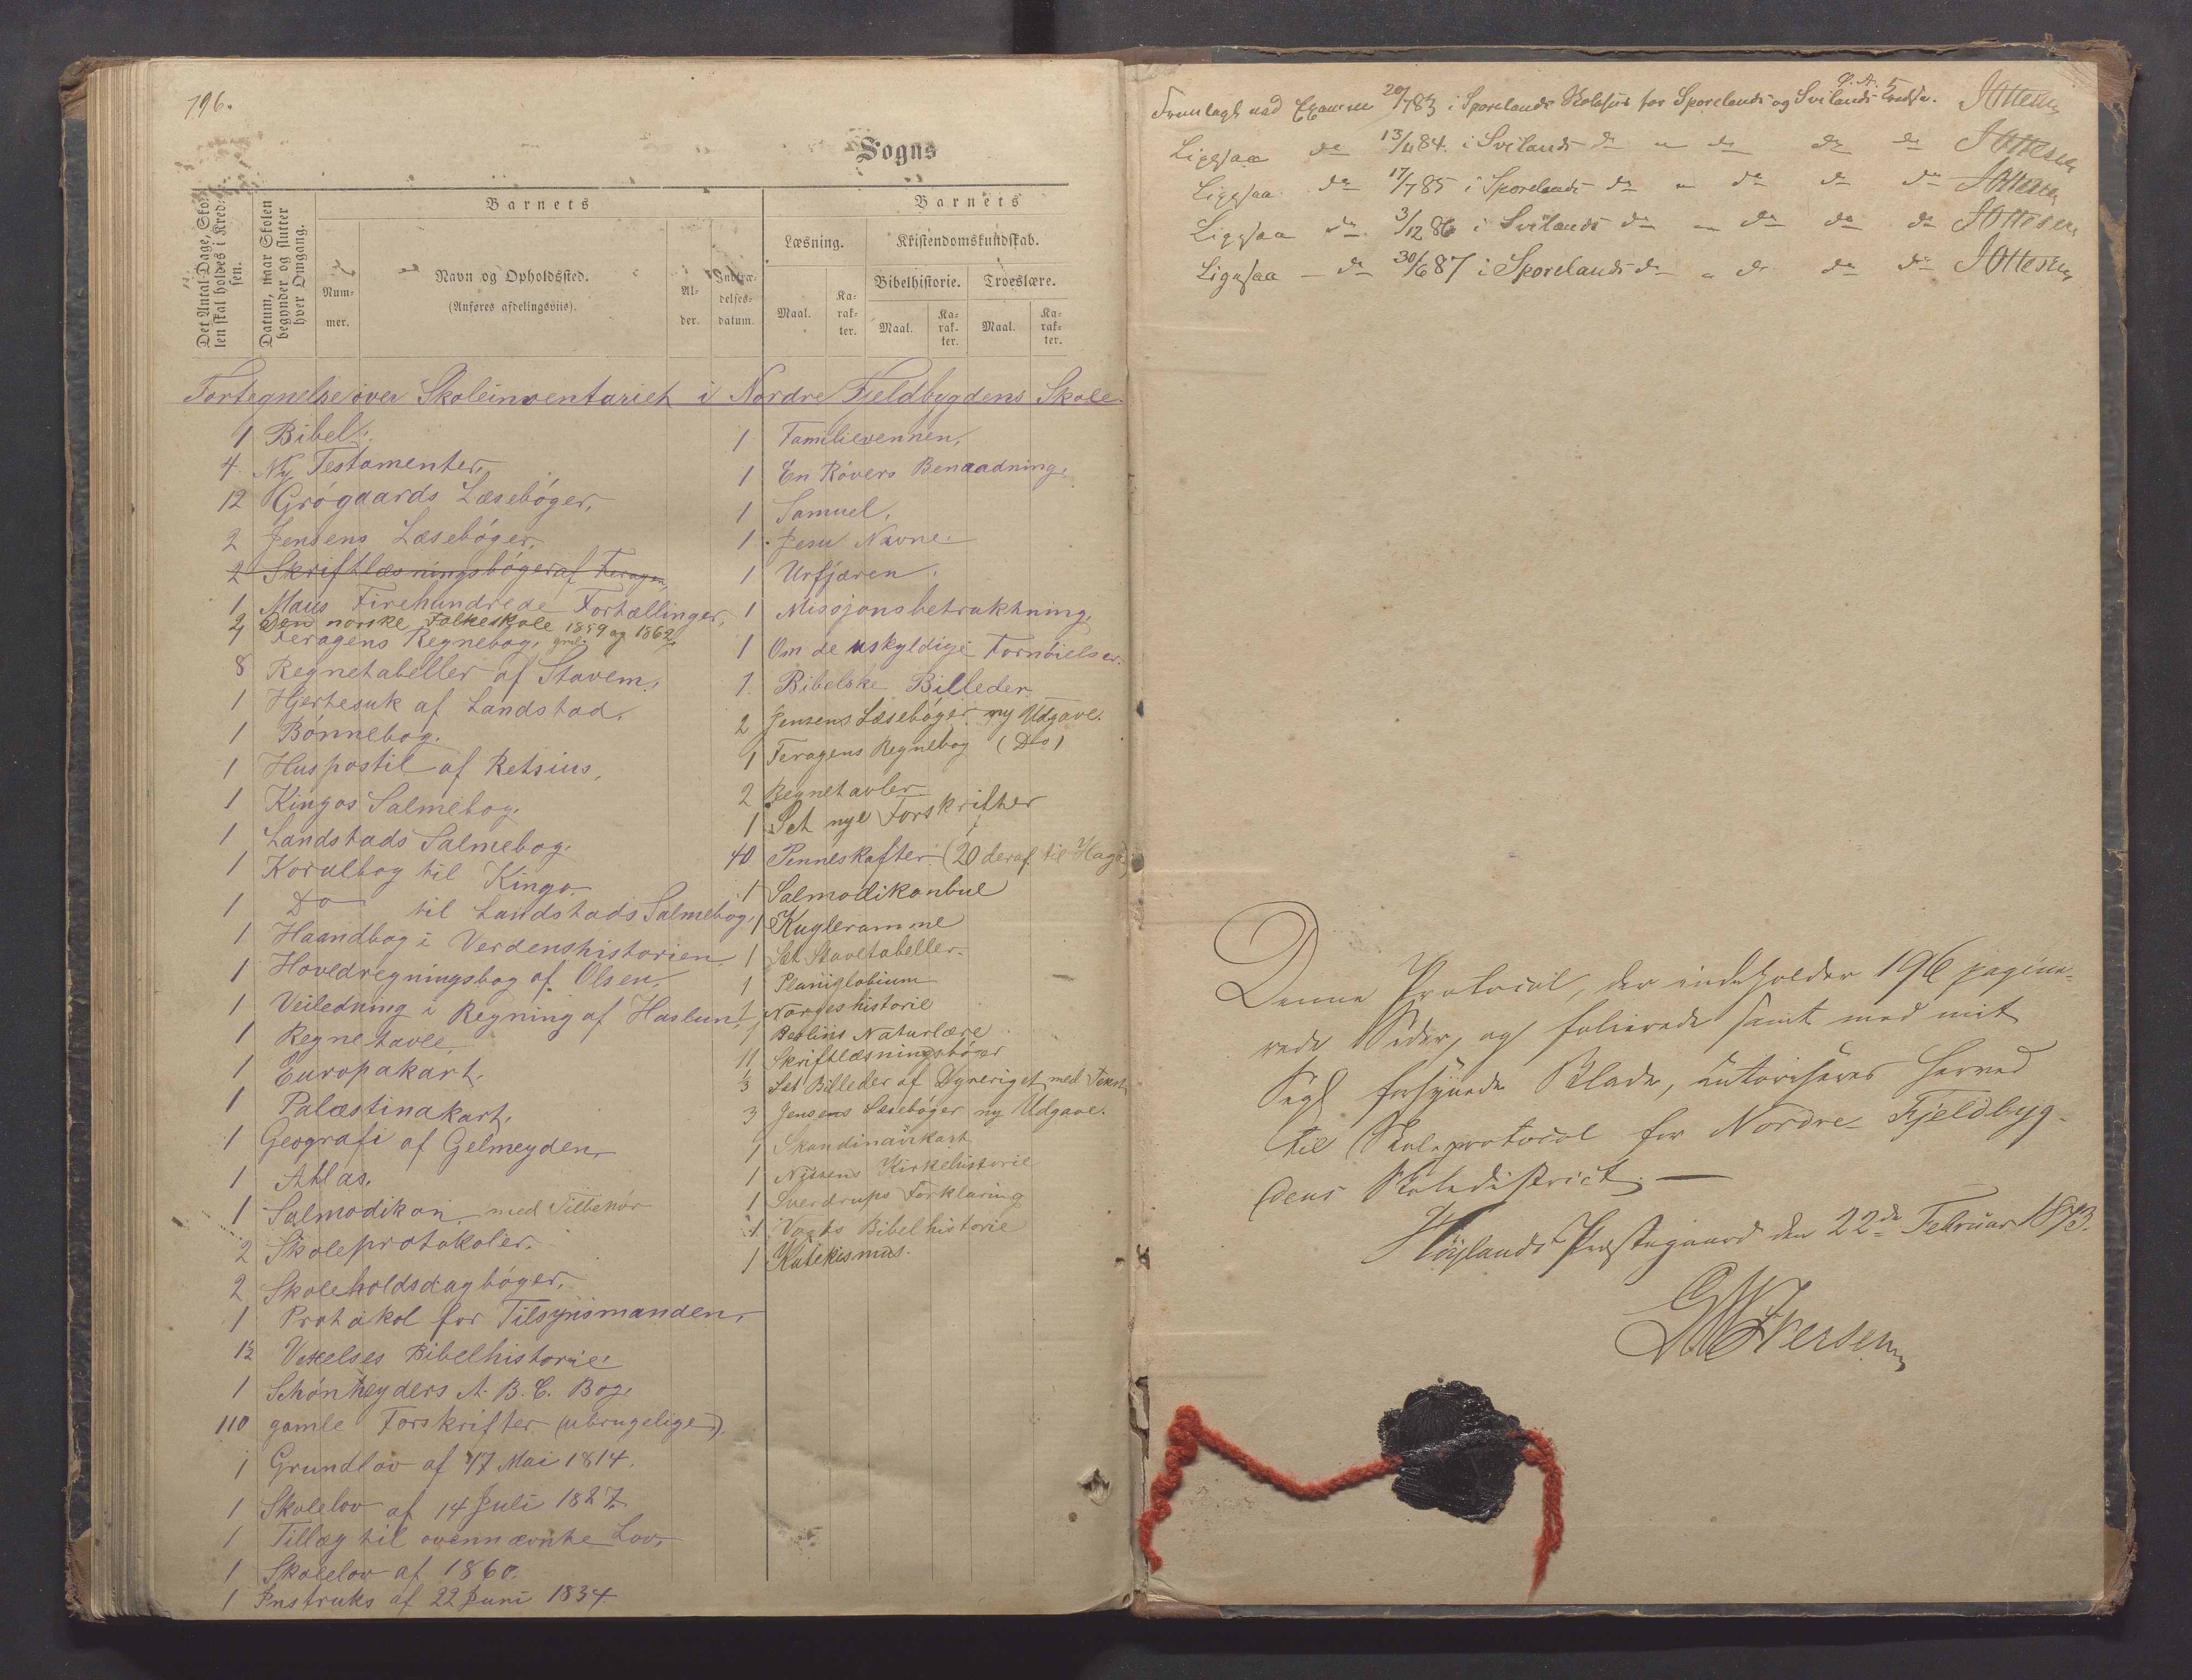 196.
Sogns
Det Antal Dage, Sko-
len skal holdes i Kred-
sen.
Datum, naar Skolen
begynder og slutter
hver Omgang.
Barnets
Barnets
Num-
mer.
Navn og Opholdssted.
(Anføres afdelingsviis).
Al-
der.
Indtræ-
delses-
datum.
Læsning.
Kristendomskundskab.
Maal.
Ka-
rak-
ter.
Bibelhistorie.
Troeslære.
Maal.
Ka-
rak-
ter.
Maal.
Ka-
rak-
ter.
Fortegnelse over Skoleinventariet i Nordre Fjeldbygdens Skole.
1 Bibel.
4 Ny Testamenter.
12 Grógaards Læsebóger.
2 Jensens Læsebóger.
2 Skriftlæsningsbóger af Feragen,
1 Maus Firehundrede Fortællinger,
2 Den norske Folkeskole 1859 og 1862.
1 Feragens Regnebog, gml.
8 Regnetabeller af Stavem.
1 Hjertesuk af Landstad.
1 Bónnebog.
1 Huspostil af Retsius,
1 Kingos Salmebog.
1 Landstads Salmebog.
1 Koralbog til Kingo.
1 Do til Landstads Salmebog.
1 Haandbog i Verdenshistorien.
1 Hovedregningsbog af Olsen.
1 Veiledning i Regning af Haslum,
1 Regnetavle
1 Europakart.
1 Palæstinakart.
1 Geografi af Gelmeyden,
1 Atlas.
1 Salmodikon, med Tilbehór
2 Skoleprotokoler.
2 Skoleholdsdagbóger.
1 Protokol for Tilsynsmanden,
12 Vexelses Bibelhistorie.
1 Schónheyders A. B. C. Bog.
110 gamle Forskrifter (ubrugelige).
1 Grundlov af 17 Mai 1814.
1 Skolelov af 14 Juli 1827.
1 Tillæg til ovennævnte Lov.
1 Skolelov af 1860.
1 Instruks af 22 Juni 1834.
1 Familievennen,
1 En Róvers Benaadning.
1 Samuel.
1 Jesu Navne.
1 Urfjæren.
1 Missjonsbetraktning,
1 Om de uskyldige Fornóielser.
1 Bibelske Billeder.
2 Jensens Læsebóger ny Udgave.
1 Feragens Regnebog (Do)
2 Regnetavler
1 Set nye Forskrifter
40 Penneskafter (20 deraf til Haga)
1 Salmodikonbue
1 Kugleramme
1 Sæt Stavetabeller.
1 Planiglobium
1 Norgeshistorie
1 Berlins Naturlære
11 Skriftlæsningsbóger
1/3 Sæt Billeder af Dyreriget med Text
3 Jensens Læsebóger ny Udgave.
1 Skandinavkart
1 Nissens Kirkehistorie
1 Sverdrups Forklaring
1 Vogts Bibelhistorie
1 Katekismus.
Fremlagt ved Examen 20/7 83 i Sporelands Skolehus for Sporelands og Svilands Kredse. J Ottesen
Ligesaa do 13/11 84. i Svilands do „ do do do J Ottesen
Ligesaa do 17/7 85 i Sporelands do „ do do do J Ottesen
Ligesaa do 3/12 86 i Svilands do „ do do do J Ottesen
Ligesaa – do 30/6 87 i Sporelands do „ do do do J Ottesen
Denne Protocol, der indeholder 196 pagine-
rede Sider, og folierede samt med mit
Segl forsynede Blade, autoriseres herved
til Skoleprotocol for Nordre Fjeldbyg-
dens Skoledistrict. –
Høylands Præstegaard den 22de Februar 1873.
Iversen